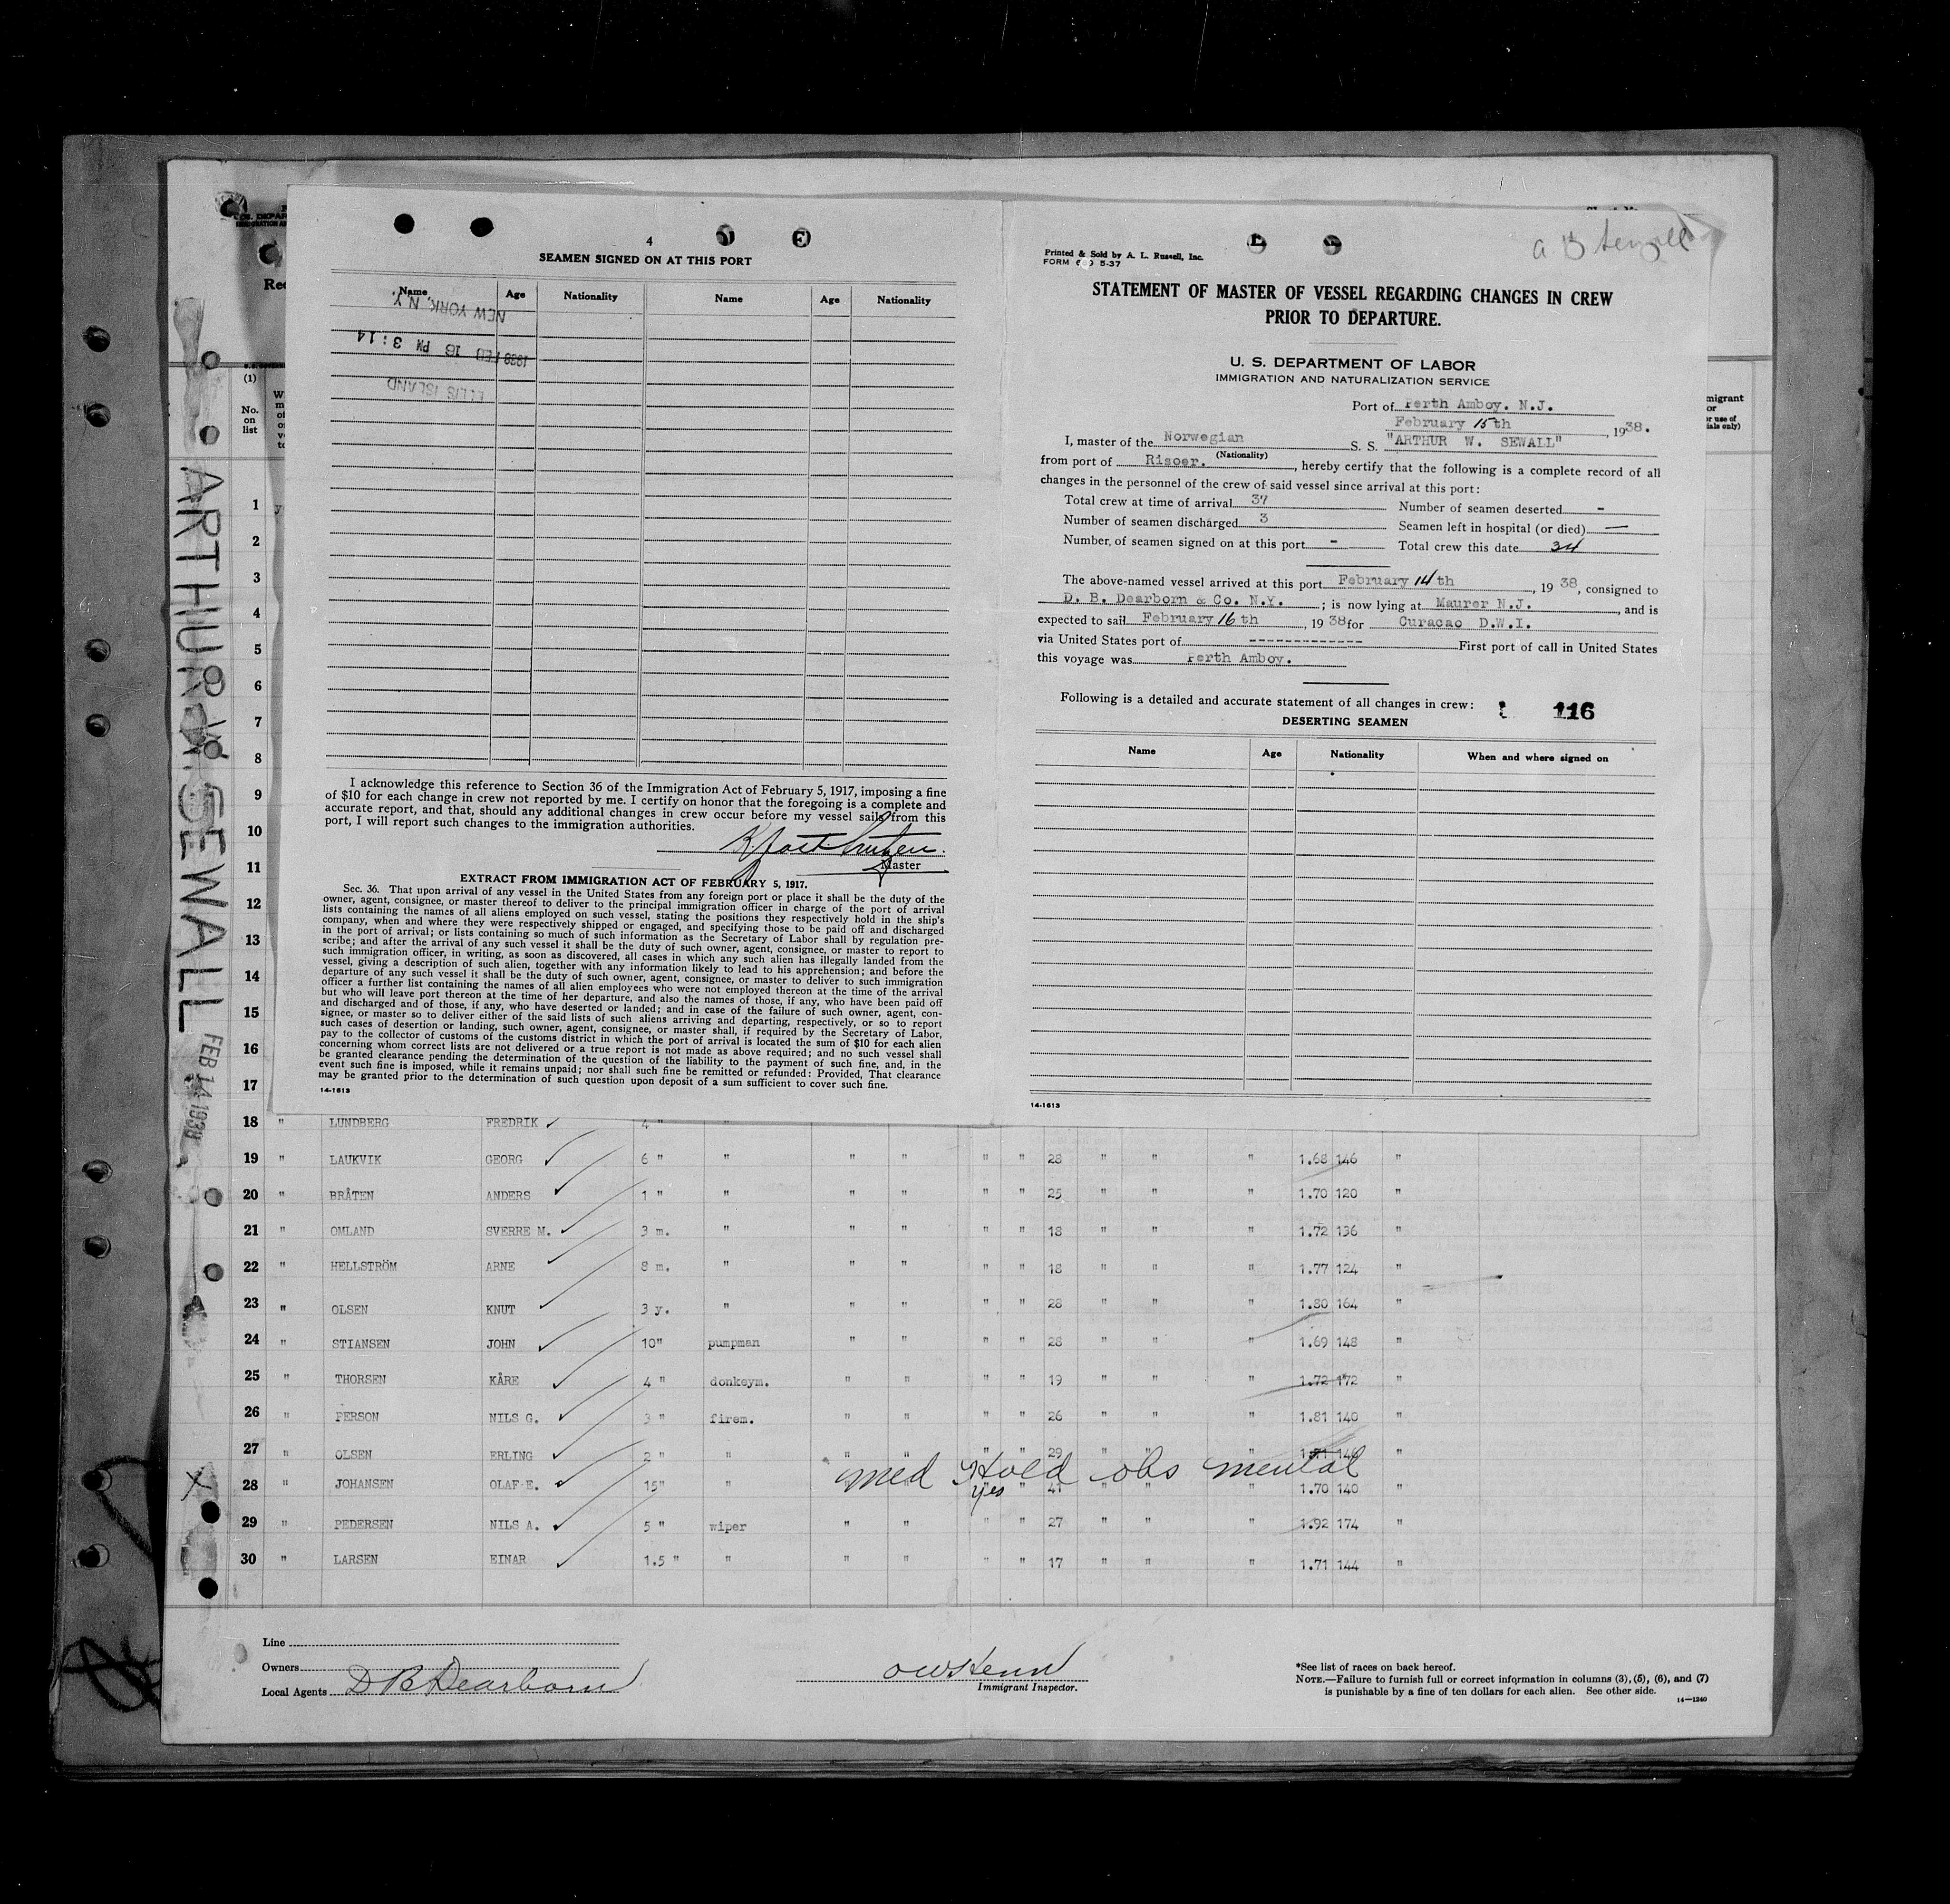 4
SEAMEN SIGNED ON AT THIS PORT
Name Age Nationality Name Age Nationality
NEW YORK, N.Y.
1938 FEB 16 PM 3:14
ELLIS ISLAND
I acknowledge this reference to Section 36 of the Immigration Act of February 5, 1917, imposing a fine
of $10 for each change in crew not reported by me. I certify on honor that the foregoing is a complete and
accurate report, and that, should any additional changes in crew occur before my vessel sails from this
port, I will report such changes to the immigration authorities.
Master
EXTRACT FROM IMMIGRATION ACT OF FEBRUARY 5, 1917.
Sec. 36. That upon arrival of any vessel in the United States from any foreign port or place it shall be the duty of the
owner, agent, consignee, or master thereof to deliver to the principal immigration officer in charge of the port of arrival
lists containing the names of all aliens employed on such vessel, stating the positions they respectively hold in the ship's
company, when and where they were respectively shipped or engaged, and specifying those to be paid off and discharged
in the port of arrival; or lists containing so much of such information as the Secretary of Labor shall by regulation pre-
scribe; and after the arrival of any such vessel it shall be the duty of such owner, agent, consignee, or master to report to
such immigration officer, in writing, as soon as discovered, all cases in which any such alien has illegally landed from the
vessel, giving a description of such alien, together with any information likely to lead to his apprehension; and before the
departure of any such vessel it shall be the duty of such owner, agent, consignee, or master to deliver to such immigration
officer a further list containing the names of all alien employees who were not employed thereon at the time of the arrival
but who will leave port thereon at the time of her departure, and also the names of those, if any, who have been paid off
and discharged and of those, if any, who have deserted or landed; and in case of the failure of such owner, agent, con-
signee, or master so to deliver either of the said lists of such aliens arriving and departing, respectively, or so to report
such cases of desertion or landing, such owner, agent, consignee, or master shall, if required by the Secretary of Labor,
pay to the collector of customs of the customs district in which the port of arrival is located the sum of $10 for each alien
concerning whom correct lists are not delivered or a true report is not made as above required; and no such vessel shall
be granted clearance pending the determination of the question of the liability to the payment of such fine, and, in the
event such fine is imposed, while it remains unpaid; nor shall such fine be remitted or refunded: Provided, That clearance
may be granted prior to the determination of such question upon deposit of a sum sufficient to cover such fine.
14-1613
a B Sewall
Printed & Sold by A. L. Russell, Inc.
FORM 5-37
STATEMENT OF MASTER OF VESSEL REGARDING CHANGES IN CREW
PRIOR TO DEPARTURE.
U. S. DEPARTMENT OF LABOR
IMMIGRATION AND NATURALIZATION SERVICE
Port of Perth Amboy. N.J.
February 15th, 1938.
I, master of the Norwegian S. S. "ARTHUR W. SEWALL"
(Nationality)
from port of Risoer., hereby certify that the following is a complete record of all
changes in the personnel of the crew of said vessel since arrival at this port:
Total crew at time of arrival 37 Number of seamen deserted -
Number of seamen discharged 3 Seamen left in hospital (or died) —
Number of seamen signed on at this port - Total crew this date 34
The above-named vessel arrived at this port February 14th, 1938, consigned to
D. B. Dearborn & Co. N.Y.; is now lying at Maurer N.J., and is
expected to sail February 16th, 1938 for Curacao D.W.I.
via United States port of ------------- First port of call in United States
this voyage was Perth Amboy.
Following is a detailed and accurate statement of all changes in crew:
116
DESERTING SEAMEN
Name Age Nationality When and where signed on
14-1613
ARTHUR W. SEWALL
FEB 14 1938
(1)
No.
on
list
1
2
3
4
5
6
7
8
9
10
11
12
13
14
15
16
17
18 " LUNDBERG FREDRIK 4 " "
19 " LAUKVIK GEORG 6 " " " " " " 28 " " " 1.68 146 "
20 " BRÅTEN ANDERS 1 " " " " " " 25 " " " 1.70 120 "
21 " OMLAND SVERRE M. 3 m. " " " " " 18 " " " 1.72 136 "
22 " HELLSTRÖM ARNE 8 m. " " " " " 18 " " " 1.77 124 "
23 " OLSEN KNUT 3 y. " " " " " 28 " " " 1.80 164 "
24 " STIANSEN JOHN 10" pumpman " " " " 28 " " " 1.69 148 "
25 " THORSEN KÅRE 4 " donkeym. " " " " 19 " " " 1.72 172 "
26 " PERSON NILS G. 3 " firem. " " " " 26 " " " 1.81 140 "
27 " OLSEN ERLING 2 " " " " " " 29 " " " 146 "
med Hold obs mental
28 " JOHANSEN OLAF E. 15" " yes " 41 " " " 1.70 140 "
29 " PEDERSEN NILS A. 5 " wiper " " " " 27 " " " 1.92 174 "
30 " LARSEN EINAR 1.5 " " " " " " 17 " " " 1.71 144 "
Line
Owners
Local Agents D B Dearborn
Immigrant Inspector.
*See list of races on back hereof.
NOTE.—Failure to furnish full or correct information in columns (3), (5), (6), and (7)
is punishable by a fine of ten dollars for each alien. See other side.
14—1240